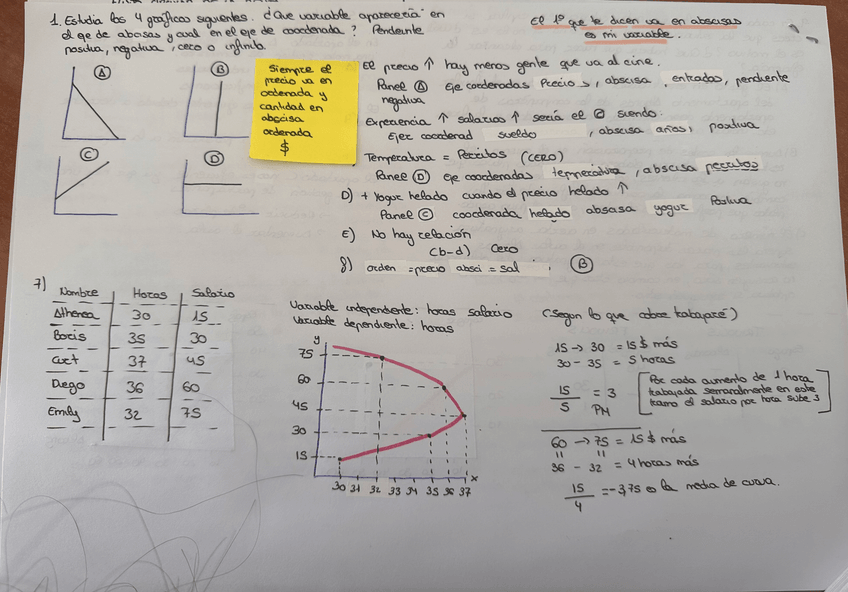 1. Estudia los 4 gráficos siguientes. ¿Que variable aparecería en
el eje de abcisas y cual en el eje de coordenada? Pendiente
positiva, negativa, cero o infinita
El 1º que te dicen va en abscisas
es mi variable.
A
B
C
D
Siempre el
precio va en
ordenada y
cantidad en
abscisa
ordenada
$
El precio ↑ hay menos gente que va al cine.
Panel A Eje coordenadas Precio, abscisa, entradas, pendiente
negativa
Experiencia ↑ salarios ↑ sería el C siendo.
Ejer coorderad sueldo, abscisa años, positiva
Temperatura = Perritos (cero)
Panel D eje coordenadas temperatura, abscisa perritos
D) + Yogur helado cuando el precio helado ↑
Panel C coordenada helado absisa yogur Positiva
E) No hay relación
(b-d) Cero
f) orden = precio absci = sal B
7)
Nombre Horas Salario
Athenea 30 15
Boris 35 30
Curt 37 45
Diego 36 60
Emily 32 75
Variable independiente: horas salario
Variable dependiente: horas
(Según lo que cobre trabajaré)
y
75
60
45
30
15
30 31 32 33 34 35 36 37
x
15 → 30 = 15 $ más
30 - 35 = 5 horas
15
5
= 3
PM
Por cada aumento de 1 hora
trabajada semanalmente en este
tramo el salario por hora sube 3
60 → 75 = 15 $ más
36 - 32 = 4 horas más
15
4
= -3,75 es la media de curva.